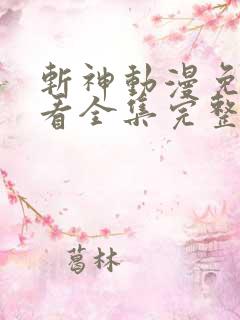 斬神動漫免
看全集完整
葛林